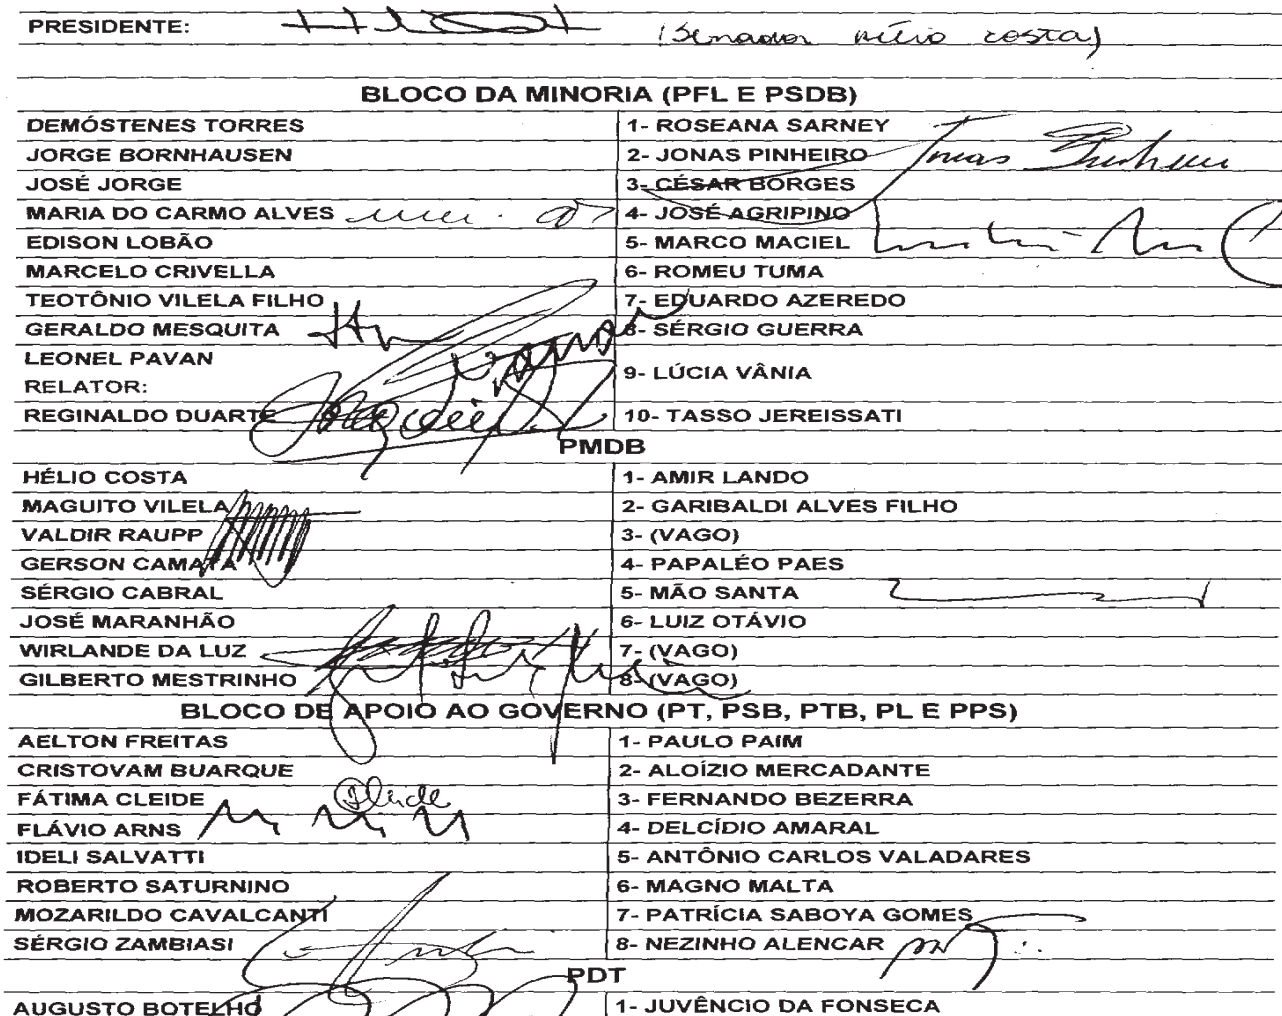 PRESIDENTE: (Senador Hélio Costa)
BLOCO DA MINORIA (PFL E PSDB)
DEMÓSTENES TORRES 1- ROSEANA SARNEY
JORGE BORNHAUSEN 2- JONAS PINHEIRO Jonas Pinheiro
JOSÉ JORGE 3- CÉSAR BORGES
MARIA DO CARMO ALVES 4- JOSÉ AGRIPINO
EDISON LOBÃO 5- MARCO MACIEL
MARCELO CRIVELLA 6- ROMEU TUMA
TEOTÔNIO VILELA FILHO 7- EDUARDO AZEREDO
GERALDO MESQUITA 8- SÉRGIO GUERRA
LEONEL PAVAN
RELATOR: 9- LÚCIA VÂNIA
REGINALDO DUARTE 10- TASSO JEREISSATI
PMDB
HÉLIO COSTA 1- AMIR LANDO
MAGUITO VILELA 2- GARIBALDI ALVES FILHO
VALDIR RAUPP 3- (VAGO)
GERSON CAMATA 4- PAPALÉO PAES
SÉRGIO CABRAL 5- MÃO SANTA
JOSÉ MARANHÃO 6- LUIZ OTÁVIO
WIRLANDE DA LUZ 7- (VAGO)
GILBERTO MESTRINHO 8- (VAGO)
BLOCO DE APOIO AO GOVERNO (PT, PSB, PTB, PL E PPS)
AELTON FREITAS 1- PAULO PAIM
CRISTOVAM BUARQUE 2- ALOÍZIO MERCADANTE
FÁTIMA CLEIDE 3- FERNANDO BEZERRA
FLÁVIO ARNS 4- DELCÍDIO AMARAL
IDELI SALVATTI 5- ANTÔNIO CARLOS VALADARES
ROBERTO SATURNINO 6- MAGNO MALTA
MOZARILDO CAVALCANTI 7- PATRÍCIA SABOYA GOMES
SÉRGIO ZAMBIASI 8- NEZINHO ALENCAR
PDT
AUGUSTO BOTELHO 1- JUVÊNCIO DA FONSECA